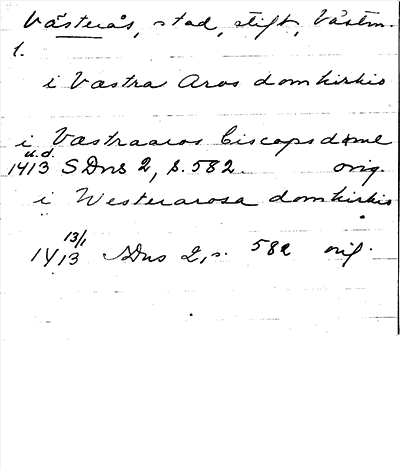 Västerås, stad, stift, Västm.
1.
i Vastra Aros domkirkio
i Væstraaros biscopsdøme
u.d.
1413 SDns 2, s. 582. orig.
i Westerarosa domkirkio
13/1
1413 SDns 2, s. 582 orig.